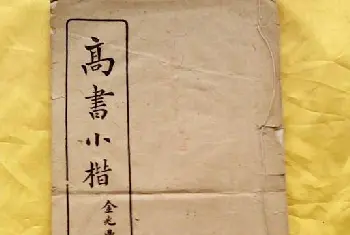 高書小楷
金兆